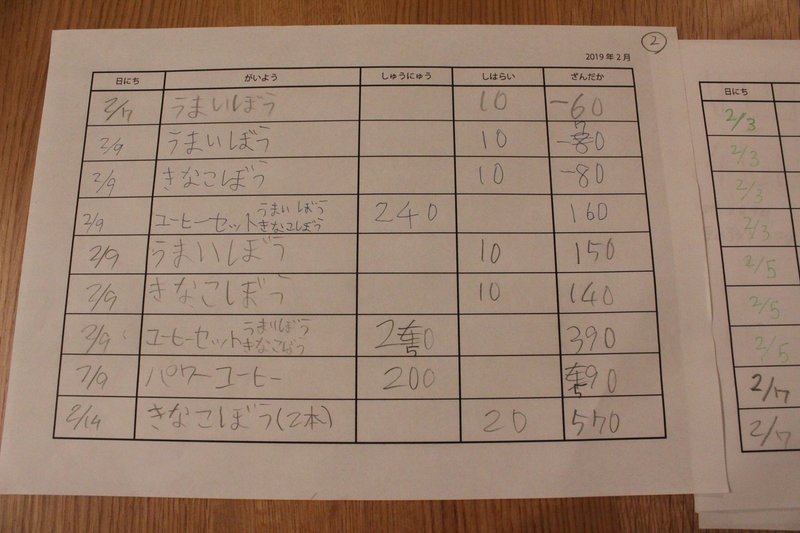 ②
2019年2月
日にち がいよう しゅうにゅう しはらい ざんだか
2/7 うまいぼう 10 -60
2/9 うまいぼう 10 -70
2/9 きなこぼう 10 -80
2/9 コーヒーセット うまいぼう きなこぼう 240 160
2/9 うまいぼう 10 150
2/9 きなこぼう 10 140
2/9 コーヒーセット うまいぼう きなこぼう 250 390
2/9 パワーコーヒー 200 590
2/14 きなこぼう(2本) 20 570
日にち
2/3
2/3
2/3
2/3
2/5
2/5
2/5
2/7
2/7